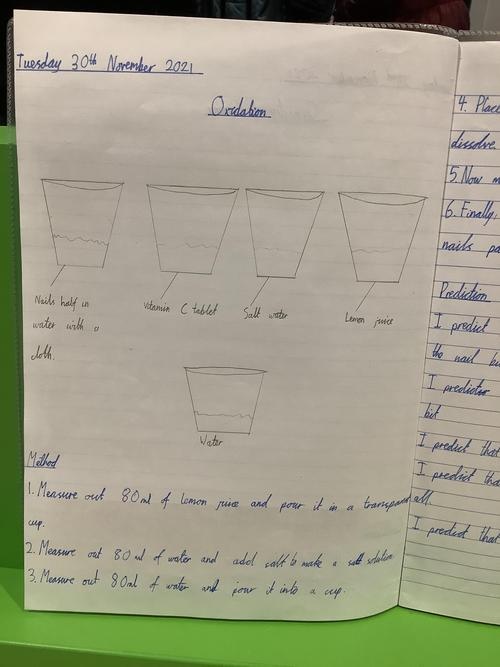 Tuesday 30th November 2021
Oxidation
Nails half in
water with a
cloth.
Vitamin C tablet
Salt water
Lemon juice
Water
Method
1. Measure out 80ml of lemon juice and pour it in a transparent
cup.
2. Measure out 80ml of water and add salt to make a salt solution
3. Measure out 80ml of water and pour it into a cup.
4. Place
dissolve.
5. Now m
6. Finally,
nails pa
Prediction
I predict
the nail bu
I predict
bit
I predict that
I predict tha
all.
I predict that